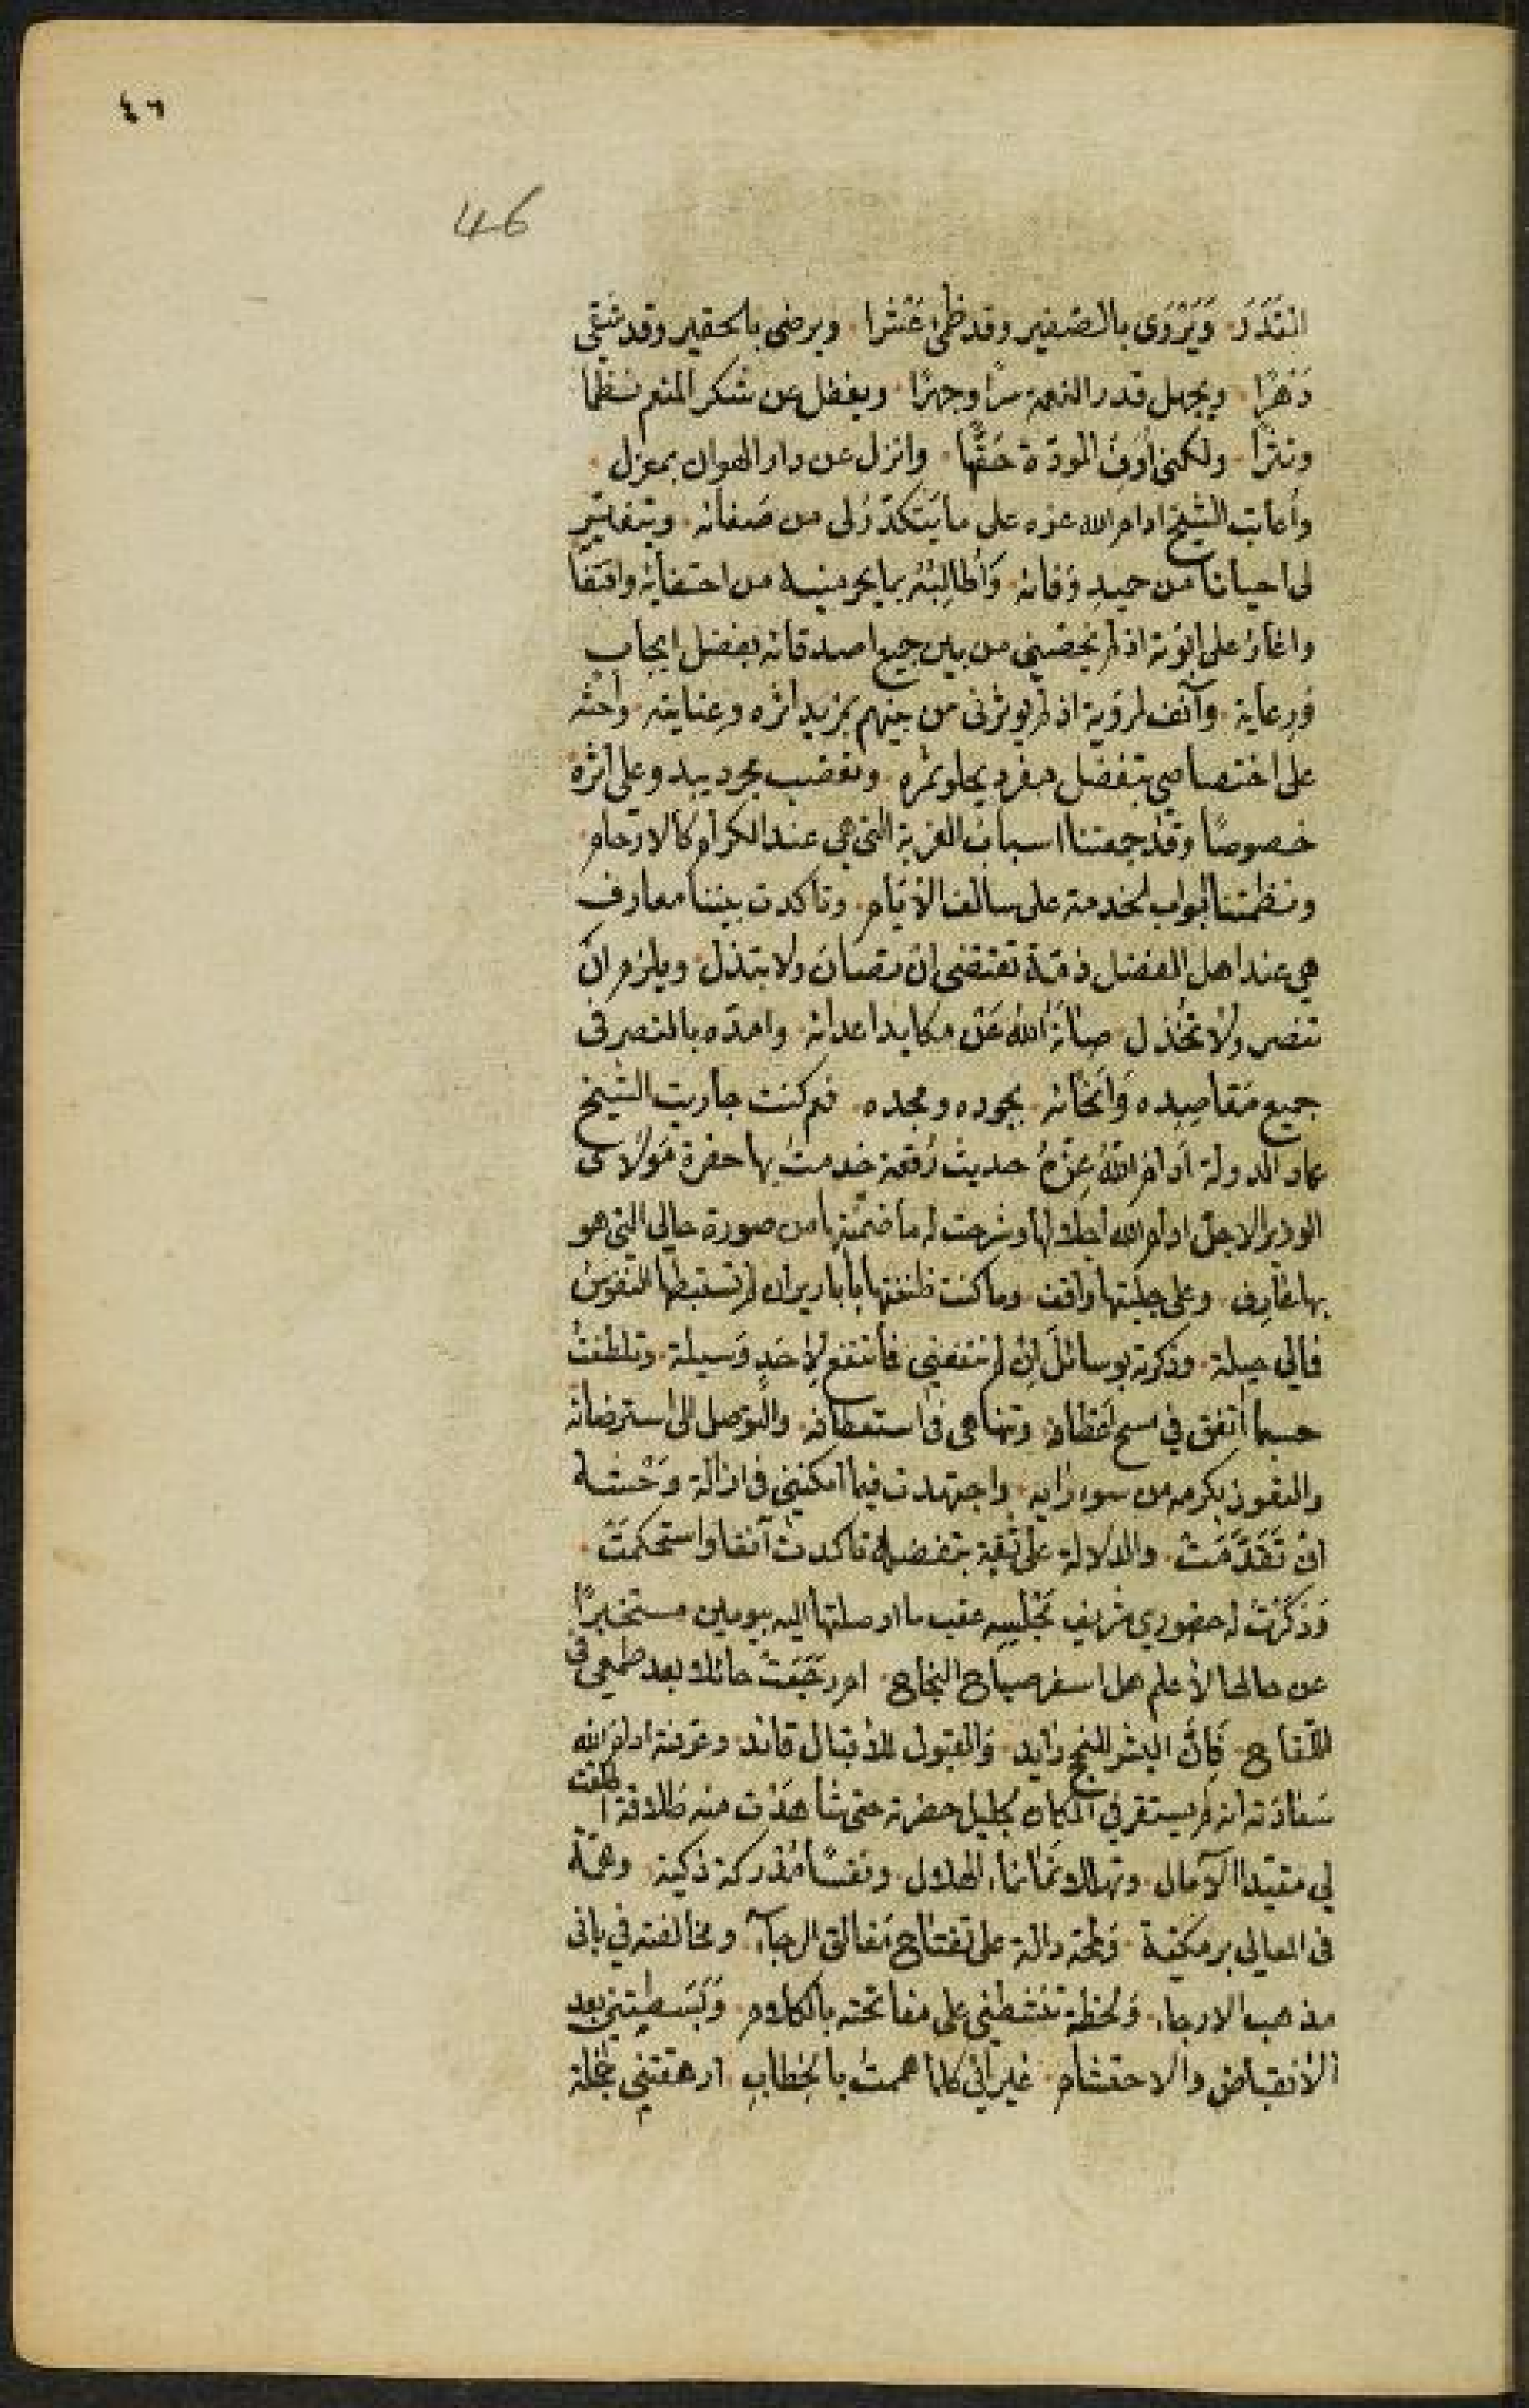 ٤٦
46
القدر ويروى بالصغير وقد ظمئ عشرا ويرضى بالحقير وقد شقى
دهرًا ويجهل قدر النعمة سرًا وجهرًا ويغفل عن شكر المنعم نظما
ونثرا ولكني أوفّ المودة حقّها وانزل عن دار الهوان بمعزل
وأعاتب الشيخ ادام الله عزه على ما يتكدّر لى من صفائه ويتغير
لى احيانا من حميد وفائه وأطالبه بما يحرمنيه من احتفائه
واغار على ابوّته اذ لم يخصّني من بين جميع اصدقائه بفضل ايجاب
ورعاية وآنف لمروّته اذ لم يوثرنى من بينهم بمزيد اثره وعنايته وأحثه
على اختصاصى بتفضل مفرد يحلو ثمره
خصوصًا وقد جمعتنا اسباب الغربة التى هى عند الكرام كالارحام
ونظمتنا ابواب الخدمة على سالف الأيام وتأكدت بيننا معارف
هي عند اهل الفضل ذمّة تقتضى ان تصان ولا تبتذل ويلزم ان
تنصر ولا تخذل صانه الله عن مكايد اعدائه وامدّه بالنصر فى
جميع مقاصده وانحائه بجوده ومجده قد كنت جاريت الشيخ
عماد الدولة أدام الله عزّه حديث رقعة خدمت بها حضرة مولاى
الوزير الاجل ادام الله اجلالها وشرحت له ما ضمّنتها من صورة حالى التى هو
بها عارف وعلى جليتها واقف وما كنت
فالى حيلة وذكرته بوسائل ان لم تنفعنى فما تنفع لأحد وسيلة وتلطفت
حسبما اتفق في وتناهى فى استعطافه والتوصل الى استرضائه
والتعوذ بكرمه من سوء رايه واجتهدت فيما امكننى فى ازالة وحشة
ان تقدّمت والدلالة على ثقة بتفضله تأكدت آنفا واستحكمت
وذكرت له حضوري شريف مجلسه عقب ما اوصلتها اليه بيومين مستخبرًا
عن حالها لأعلم هل اسفر صباح النجاح ام رجعت حائلا بعد طمعى فى
اللقاح فكان البشر للنجح رايد والقبول للاقبال قائد وعرفته ادام الله
سعادته انه لم يستقر بي المكان بجليل حضرته حتى شاهدت منه طلاقة اطلقت
لي مقيّد الآمال وتهللا الهلال ونفسًا مدركة ذكية وهمّة
فى المعالى برمكيّة ولمحة دالة على تفتاح مغالق الرجاء ومخالفته في بابى
مذهب الارجاء ولحظة تنشطنى على مفاتحته بالكلام وتبسطني بعد
الانقباض والاحتشام غير انّي كلما هممت بالخطاب ارهقتني خجلة